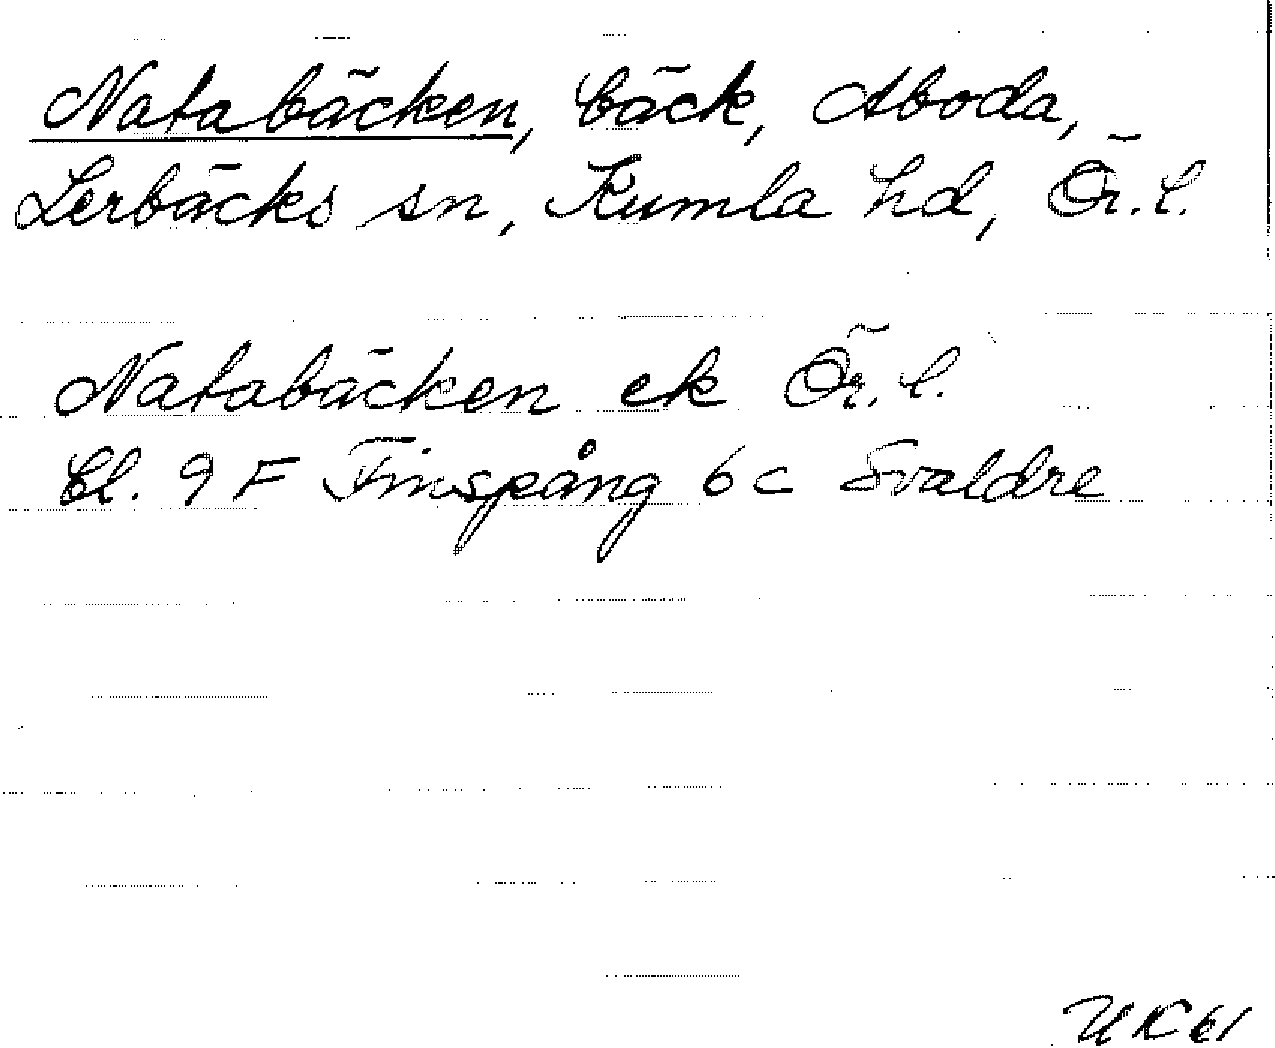 Natabäcken, bäck, Aboda,
Lerbäcks sn, Kumla hd, Ör. l.
Natabäcken ek Ör. l.
Bl. 9 F Finspång 6 c Svaldre
UK 61